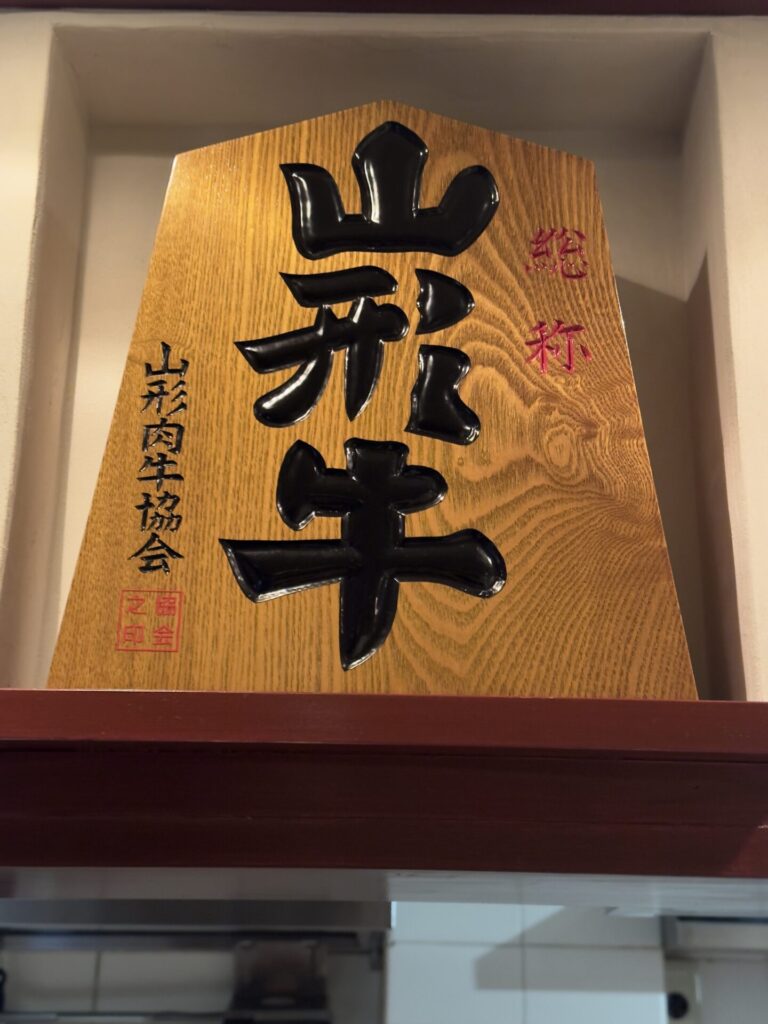 総称
山形牛
山形肉牛協会
協会
之印